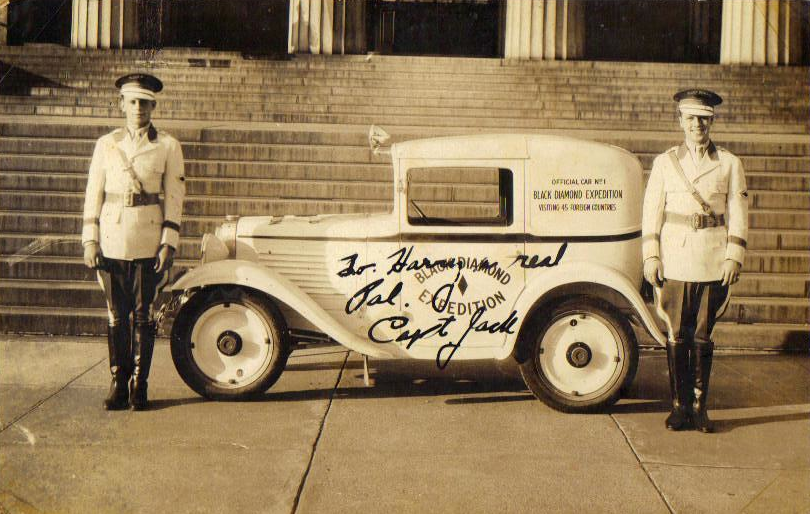 OFFICIAL CAR Nº1
BLACK DIAMOND EXPEDITION
VISITING 45 FOREIGN COUNTRIES
BLACK DIAMOND
EXPEDITION
To. Harry, a real
Pal.
Capt Jack